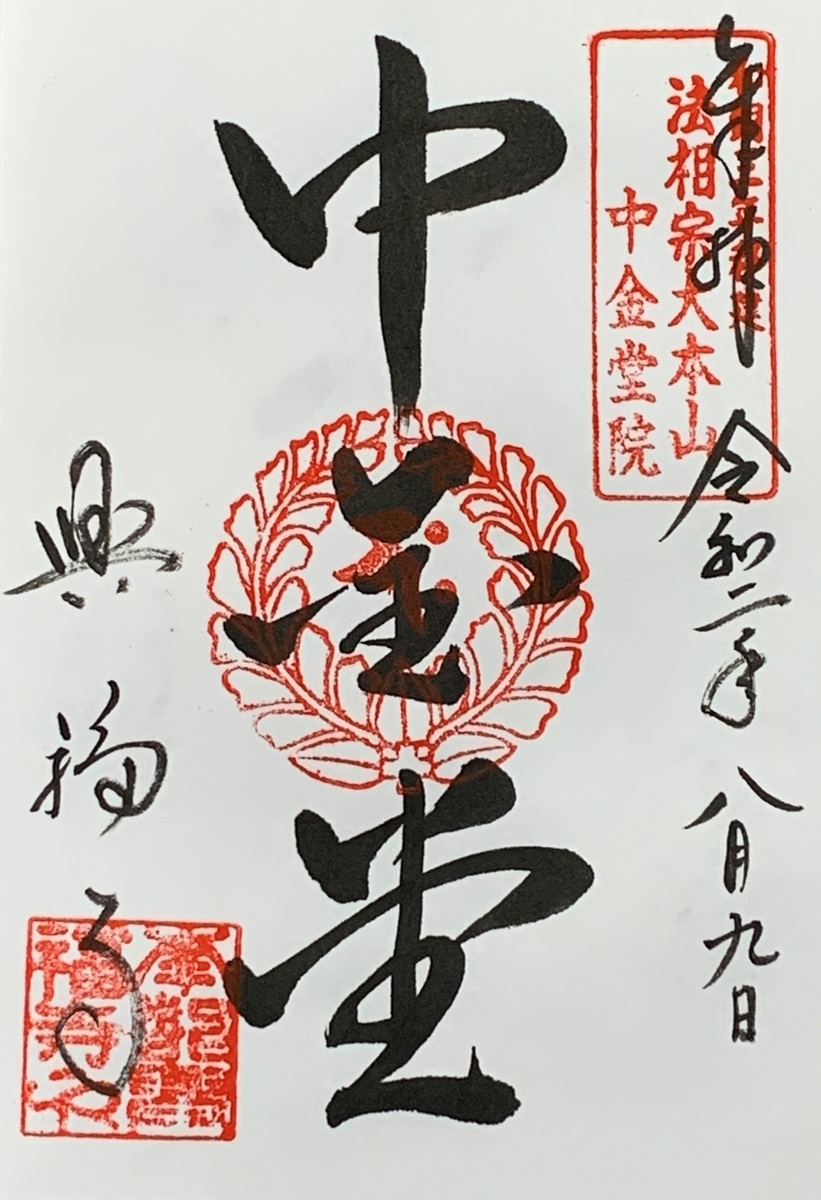 奉拝 令和二年八月九日
法相宗大本山
中金堂院
中金堂
興福寺